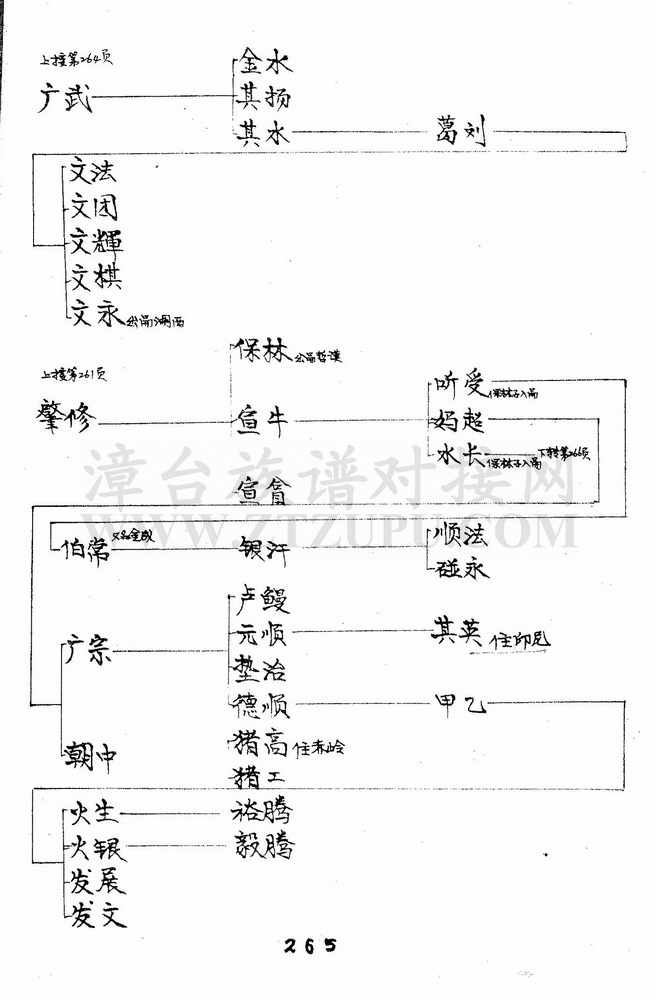 上接第264页
金水
广武 其扬
其水 葛刘
文法
文团
文輝
文棋
文永
保林
上接第261页
肇修 宣牛
听受 保林子入嗣
妈超
水长 保林子入嗣 下转第266页
漳台族谱对接网
WWW.ZTZUPU.COM
伯常 又名金成 银汗
顺法
碰永
卢鳗
广宗 元顺 其英 住印尼
垫治
德顺 甲乙
朝中 猪高 住赤岭
猪工
火生 裕腾
火银 毅腾
发展
发文
265